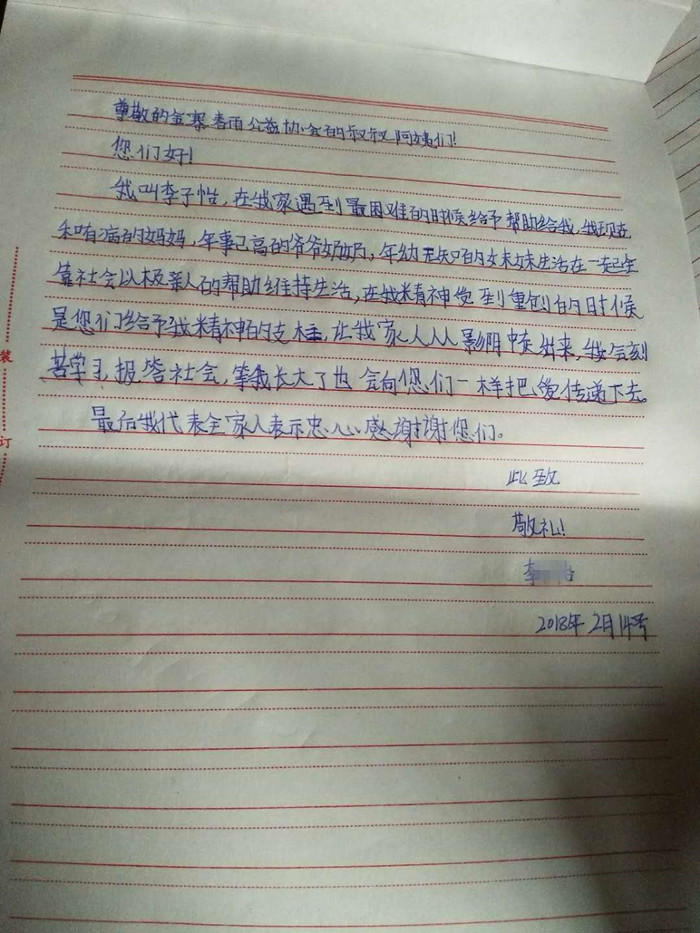 尊敬的金寨春雨公益协会的叔叔阿姨们!
您们好!
我叫李子怡,在我家遇到最困难的时候给予帮助给我,我现在
和有病的妈妈,年事已高的爷爷奶奶,年幼无知的妹妹生活在一起全
靠社会以及亲人的帮助维持生活,在我精神受到重创的时候
是您们给予我精神的支柱,让我家人从阴影中走出来,我会刻
苦学习,报答社会,等我长大了也会向您们一样把爱传递下去。
最后我代表全家人表示忠心感谢谢您们。
此致
敬礼!
李
2018年2月14号
装
订